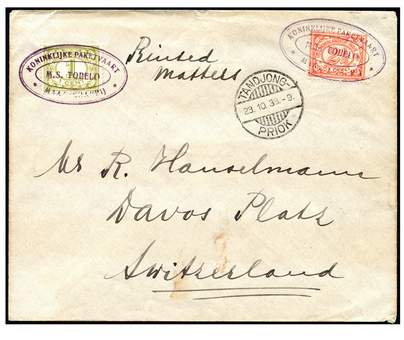 KONINKLIJKE PAKETVAART
M.S. TODELO
MAATSCHAPPIJ
Rinsed
Matters
KONINKLIJKE PAKETVAART
M.S. TODELO
TANDJONG-
23.10.33.-9.
PRIOK
Mr R. Hanselmann
Davos Platz
Switzerland